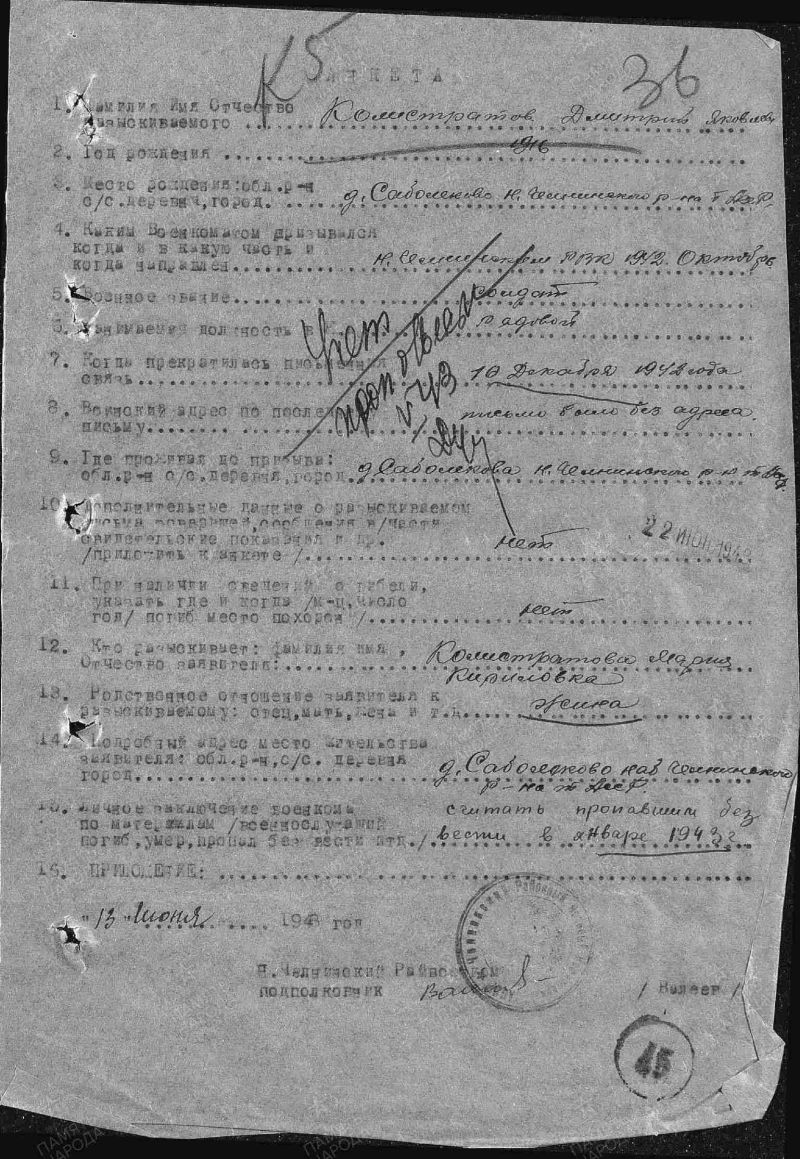 К5
36
АНКЕТА
1. Фамилия Имя Отчество
разыскиваемого Колистратов Дмитрий Яковлев
2. Год рождения 1916
3. Место рождения: обл.р-н
с/с.деревня,город. д. Саболеково н. Челнинского р-на Т АССР
4. Каким Военкоматом призывался
когда и в какую часть и
когда направлен н. Челнинским РВК 1942 Октябрь
5. Военное звание солдат
6. Занимаемая должность в рядовой
7. Когда прекратилась письменная
связь 10 Декабря 1942 года
8. Воинский адрес по послед
письму письмо было без адреса
Учтен
проп
v 43
9. Где проживал до призыва:
обл.р-н с/с.деревня,город д Саболекова н. Челнинского
10. Дополнительные данные о разыскиваемом
письма товарищей,сообщения в/части
свидетельские показания и др.
/приложить к анкете / нет
22 ИЮН 194
11. При наличии сведений о гибели,
указать где и когда /м-ц,число
год/ погиб место похорон / нет
12. Кто разыскивает: фамилия имя,
Отчество заявителя: Колистратова Мария
Кириловка
13. Родственное отношение заявителя к
разыскиваемому: отец,мать,жена и т.д. жина
14. Подробный адрес место жительства
заявителя: обл.р-н,с/с. деревня
город д. Саболеково наб Челнинского
р-на т АССР
15. Личное заключение военкома считать пропавшим без
по материалам /военнослужащий
погиб,умер,пропал без вести итд./ вести в январе 1943 г
16. ПРИЛОЖЕНИЕ:
"13" Июня 1948 год
Н.Челнинский Райвоенком
подполковник / Валеев /
45
ПАМЯТЬ
НАРОДА